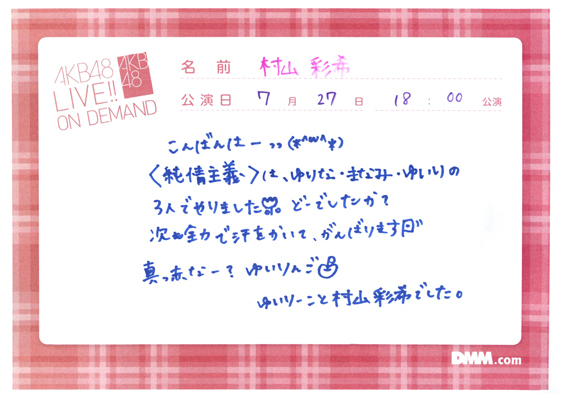 AKB48
LIVE!!
ON DEMAND
AKB
48
名前 村山 彩希
公演日 7月 27日 18:00 公演
こんばんはーっっ(*^ω^*)
〈純情主義〉は、ゆりな・まなみ・ゆいりの
3人でやりました どーでしたか?
次も全力で汗をかいて、がんばります
真っ赤なー? ゆいりんご
ゆいりーこと村山彩希でした。
DMM.com